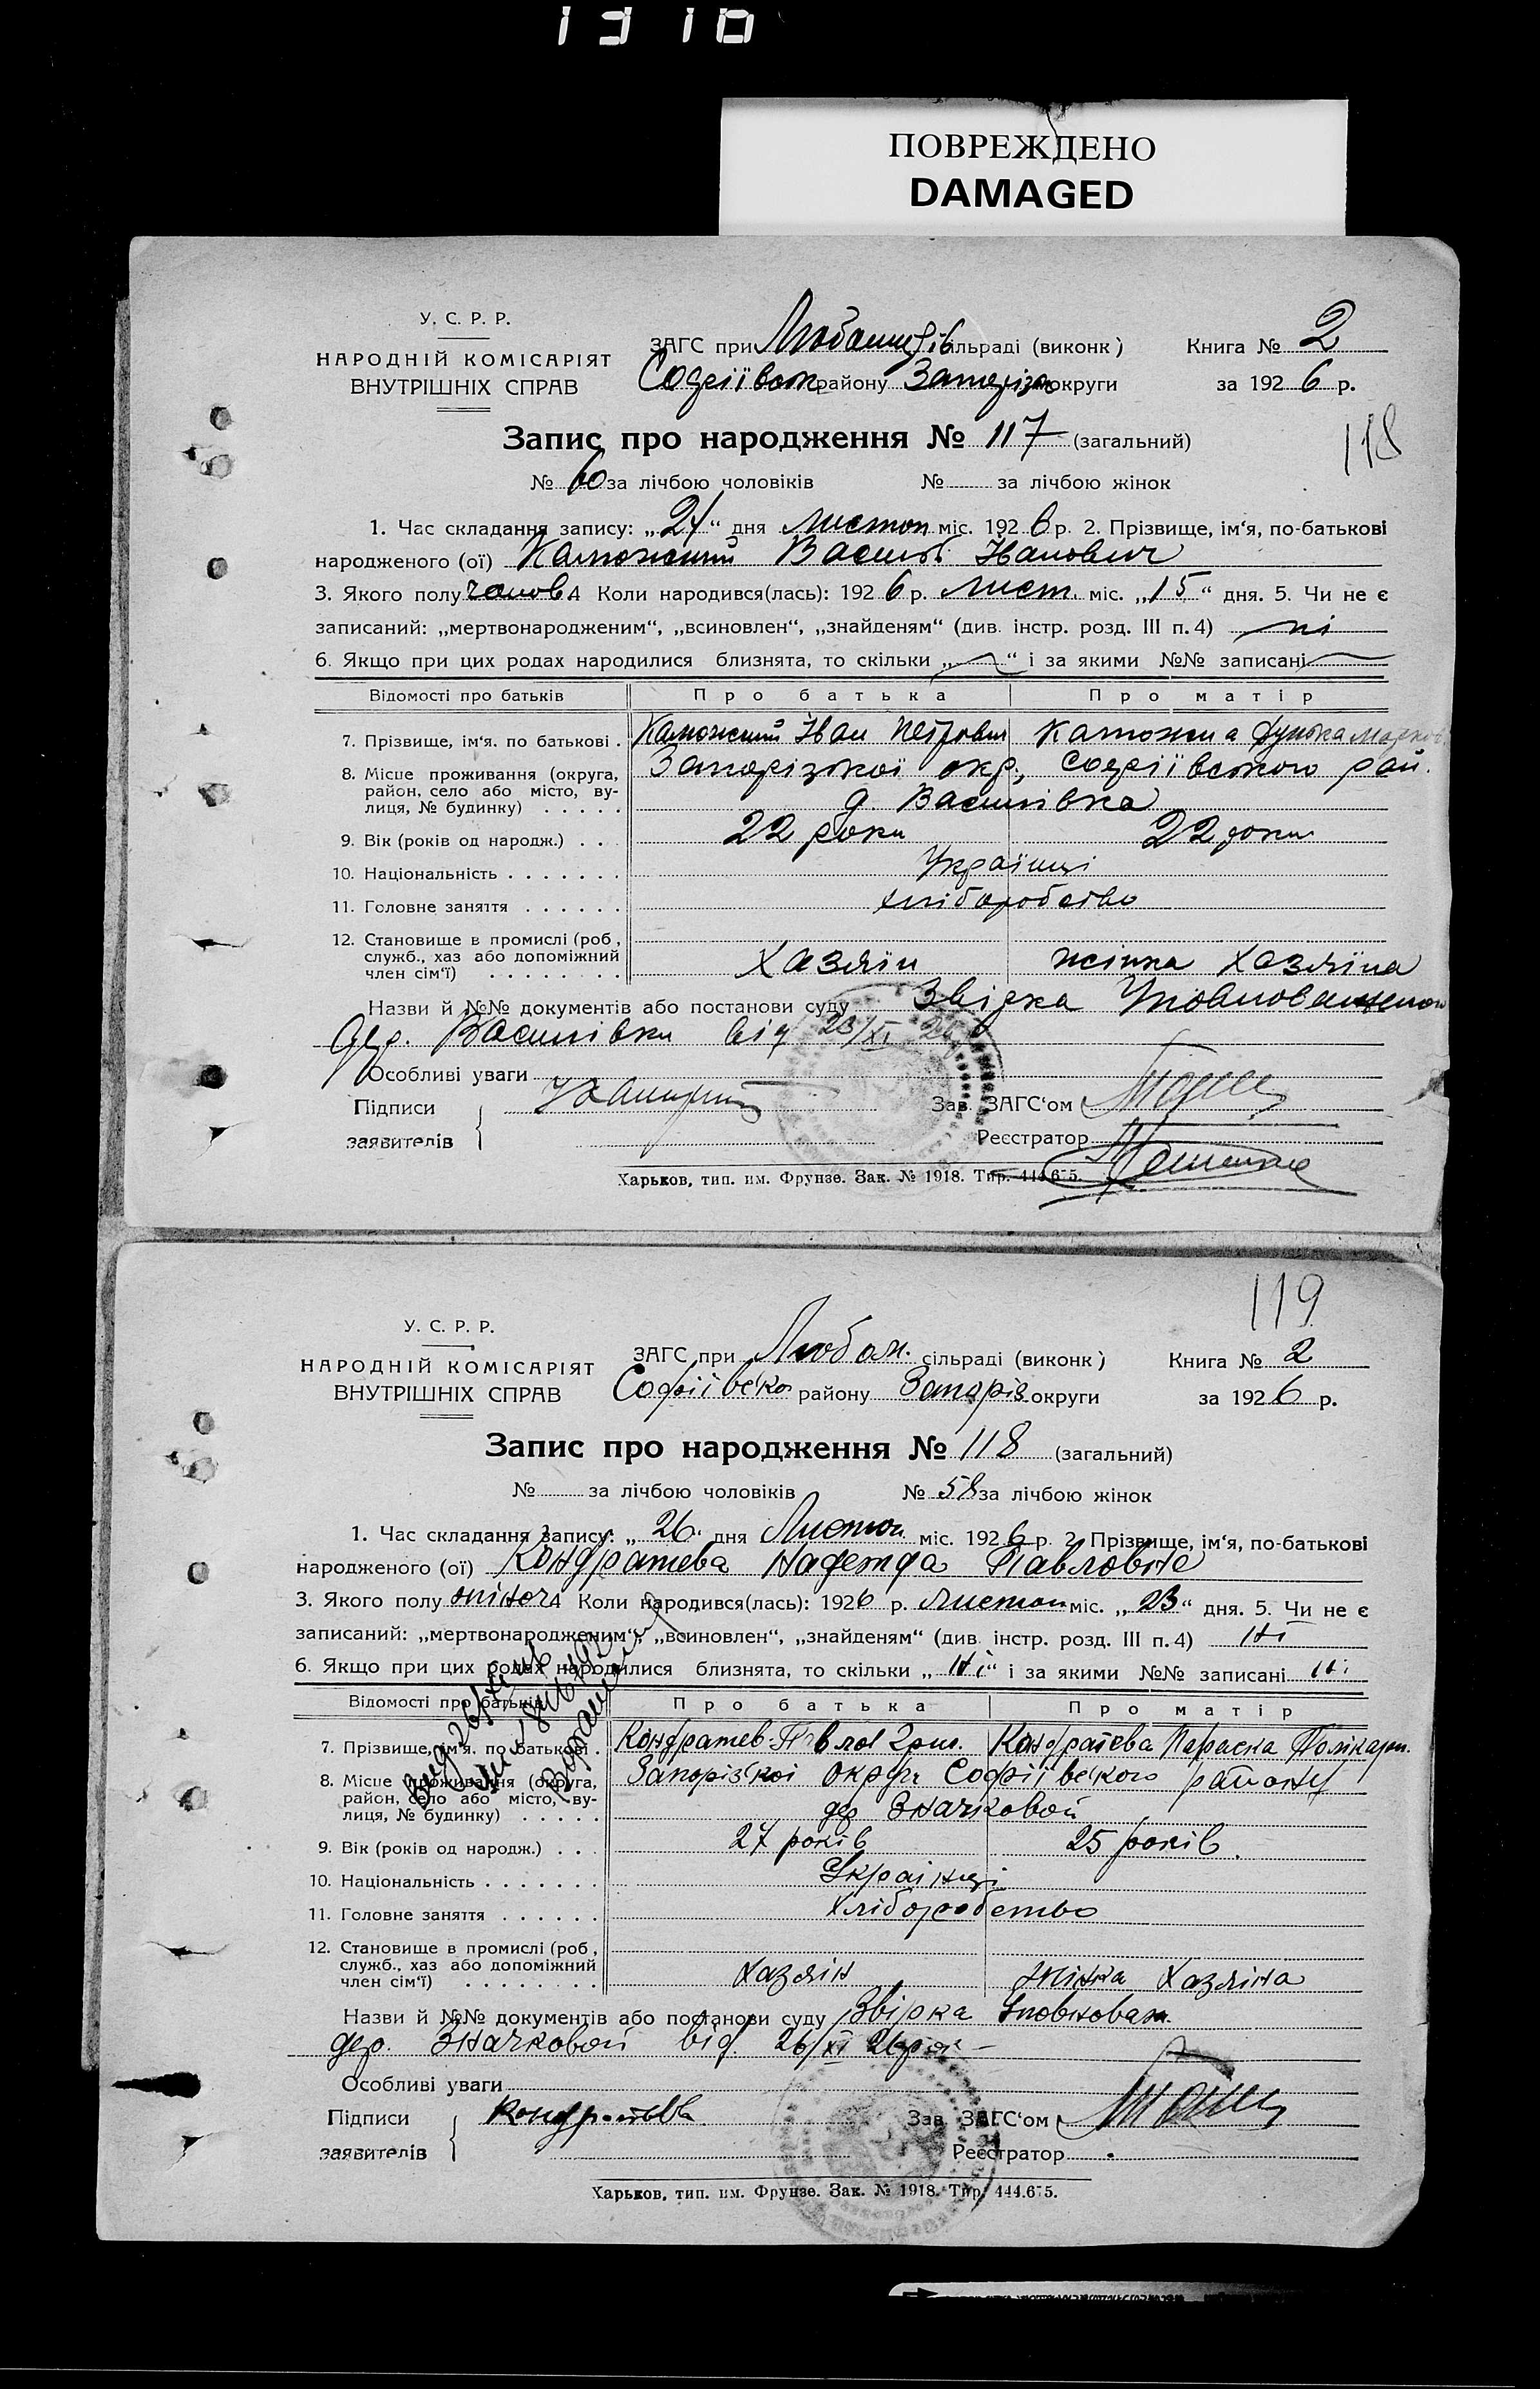 1310
ПОВРЕЖДЕНО
DAMAGED
У. С. Р. Р.
НАРОДНІЙ КОМІСАРІЯТ
ВНУТРІШНІХ СПРАВ
ЗАГС при сільраді (виконк) Книга № 2
Софіївськ району Запоріз округи за 1926 р.
Запис про народження № 117 (загальний)
118
№ 60 за лічбою чоловіків № за лічбою жінок
1. Час складання запису: „24“ дня листоп міс. 1926 р. 2. Прізвище, ім‘я, по-батькові
народженого (ої) Василь Іванович
3. Якого полу чолов 4 Коли народився(лась): 1926 р. лист. міс. „15“ дня. 5. Чи не є
записаний: „мертвонародженим“, „всиновлен“, „знайденям“ (див. інстр. розд. III п. 4) ні
6. Якщо при цих родах народилися близнята, то скільки „—“ і за якими №№ записані —
Відомості про батьків Про батька Про матір
7. Прізвище, ім‘я. по батькові . Іван Петрович
8. Місце проживання (округа, район, село або місто, вулиця, № будинку) . . . . . Запорізької окр., Софіївського рай.
д. Василівка
9. Вік (років од народж.) . . . 22 роки 22 роки
10. Національність . . . . . . . Українці
11. Головне заняття . . . . . . хліборобство
12. Становище в промислі (роб, служб., хаз або допоміжний член сім‘ї) . . . . . . . . Хазяїн жінка Хазяїна
Назви й №№ документів або постанови суду Звірка
дер. Василівки від 23/XI
Особливі уваги
Підписи Зав. ЗАГС‘ом
заявителів Реєстратор
Харьков, тип. им. Фрунзе. Зак. № 1918. Тир. 444.675.
119
У. С. Р. Р.
НАРОДНІЙ КОМІСАРІЯТ
ВНУТРІШНІХ СПРАВ
ЗАГС при Любом. сільраді (виконк) Книга № 2
Софіївско району Запоріз округи за 1926 р.
Запис про народження № 118 (загальний)
№ за лічбою чоловіків № 58 за лічбою жінок
1. Час складання запису: „26“ дня Листоп міс. 1926 р. 2 Прізвище, ім‘я, по-батькові
народженого (ої) Кондратева Надежда Павловне
3. Якого полу жіноч 4 Коли народився(лась): 1926 р. листоп міс. „23“ дня. 5. Чи не є
записаний: „мертвонародженим“, „всиновлен“, „знайденям“ (див. інстр. розд. III п. 4) ні
6. Якщо при цих родах народилися близнята, то скільки „ні“ і за якими №№ записані ні
Відомості про батьків Про батька Про матір
7. Прізвище, ім‘я. по батькові . Кондратев Павло Григ. Кондратева Параска Полікарп.
8. Місце проживання (округа, район, село або місто, вулиця, № будинку) . . . . . Запорізкоі Округи Софіївского району
дер Значковой
9. Вік (років од народж.) . . . 27 років 25 років.
10. Національність . . . . . . . Українці
11. Головне заняття . . . . . . Хліборобство
12. Становище в промислі (роб, служб., хаз або допоміжний член сім‘ї) . . . . . . . . Хазяін жінка Хазяіна
Назви й №№ документів або постанови суду Звірка Уповноваж.
дер. Значковой від 26/XI 26
Особливі уваги
Підписи Кондратьева Зав. ЗАГС‘ом
заявителів Реєстратор
Харьков, тип. им. Фрунзе. Зак. № 1918. Тир. 444.675.